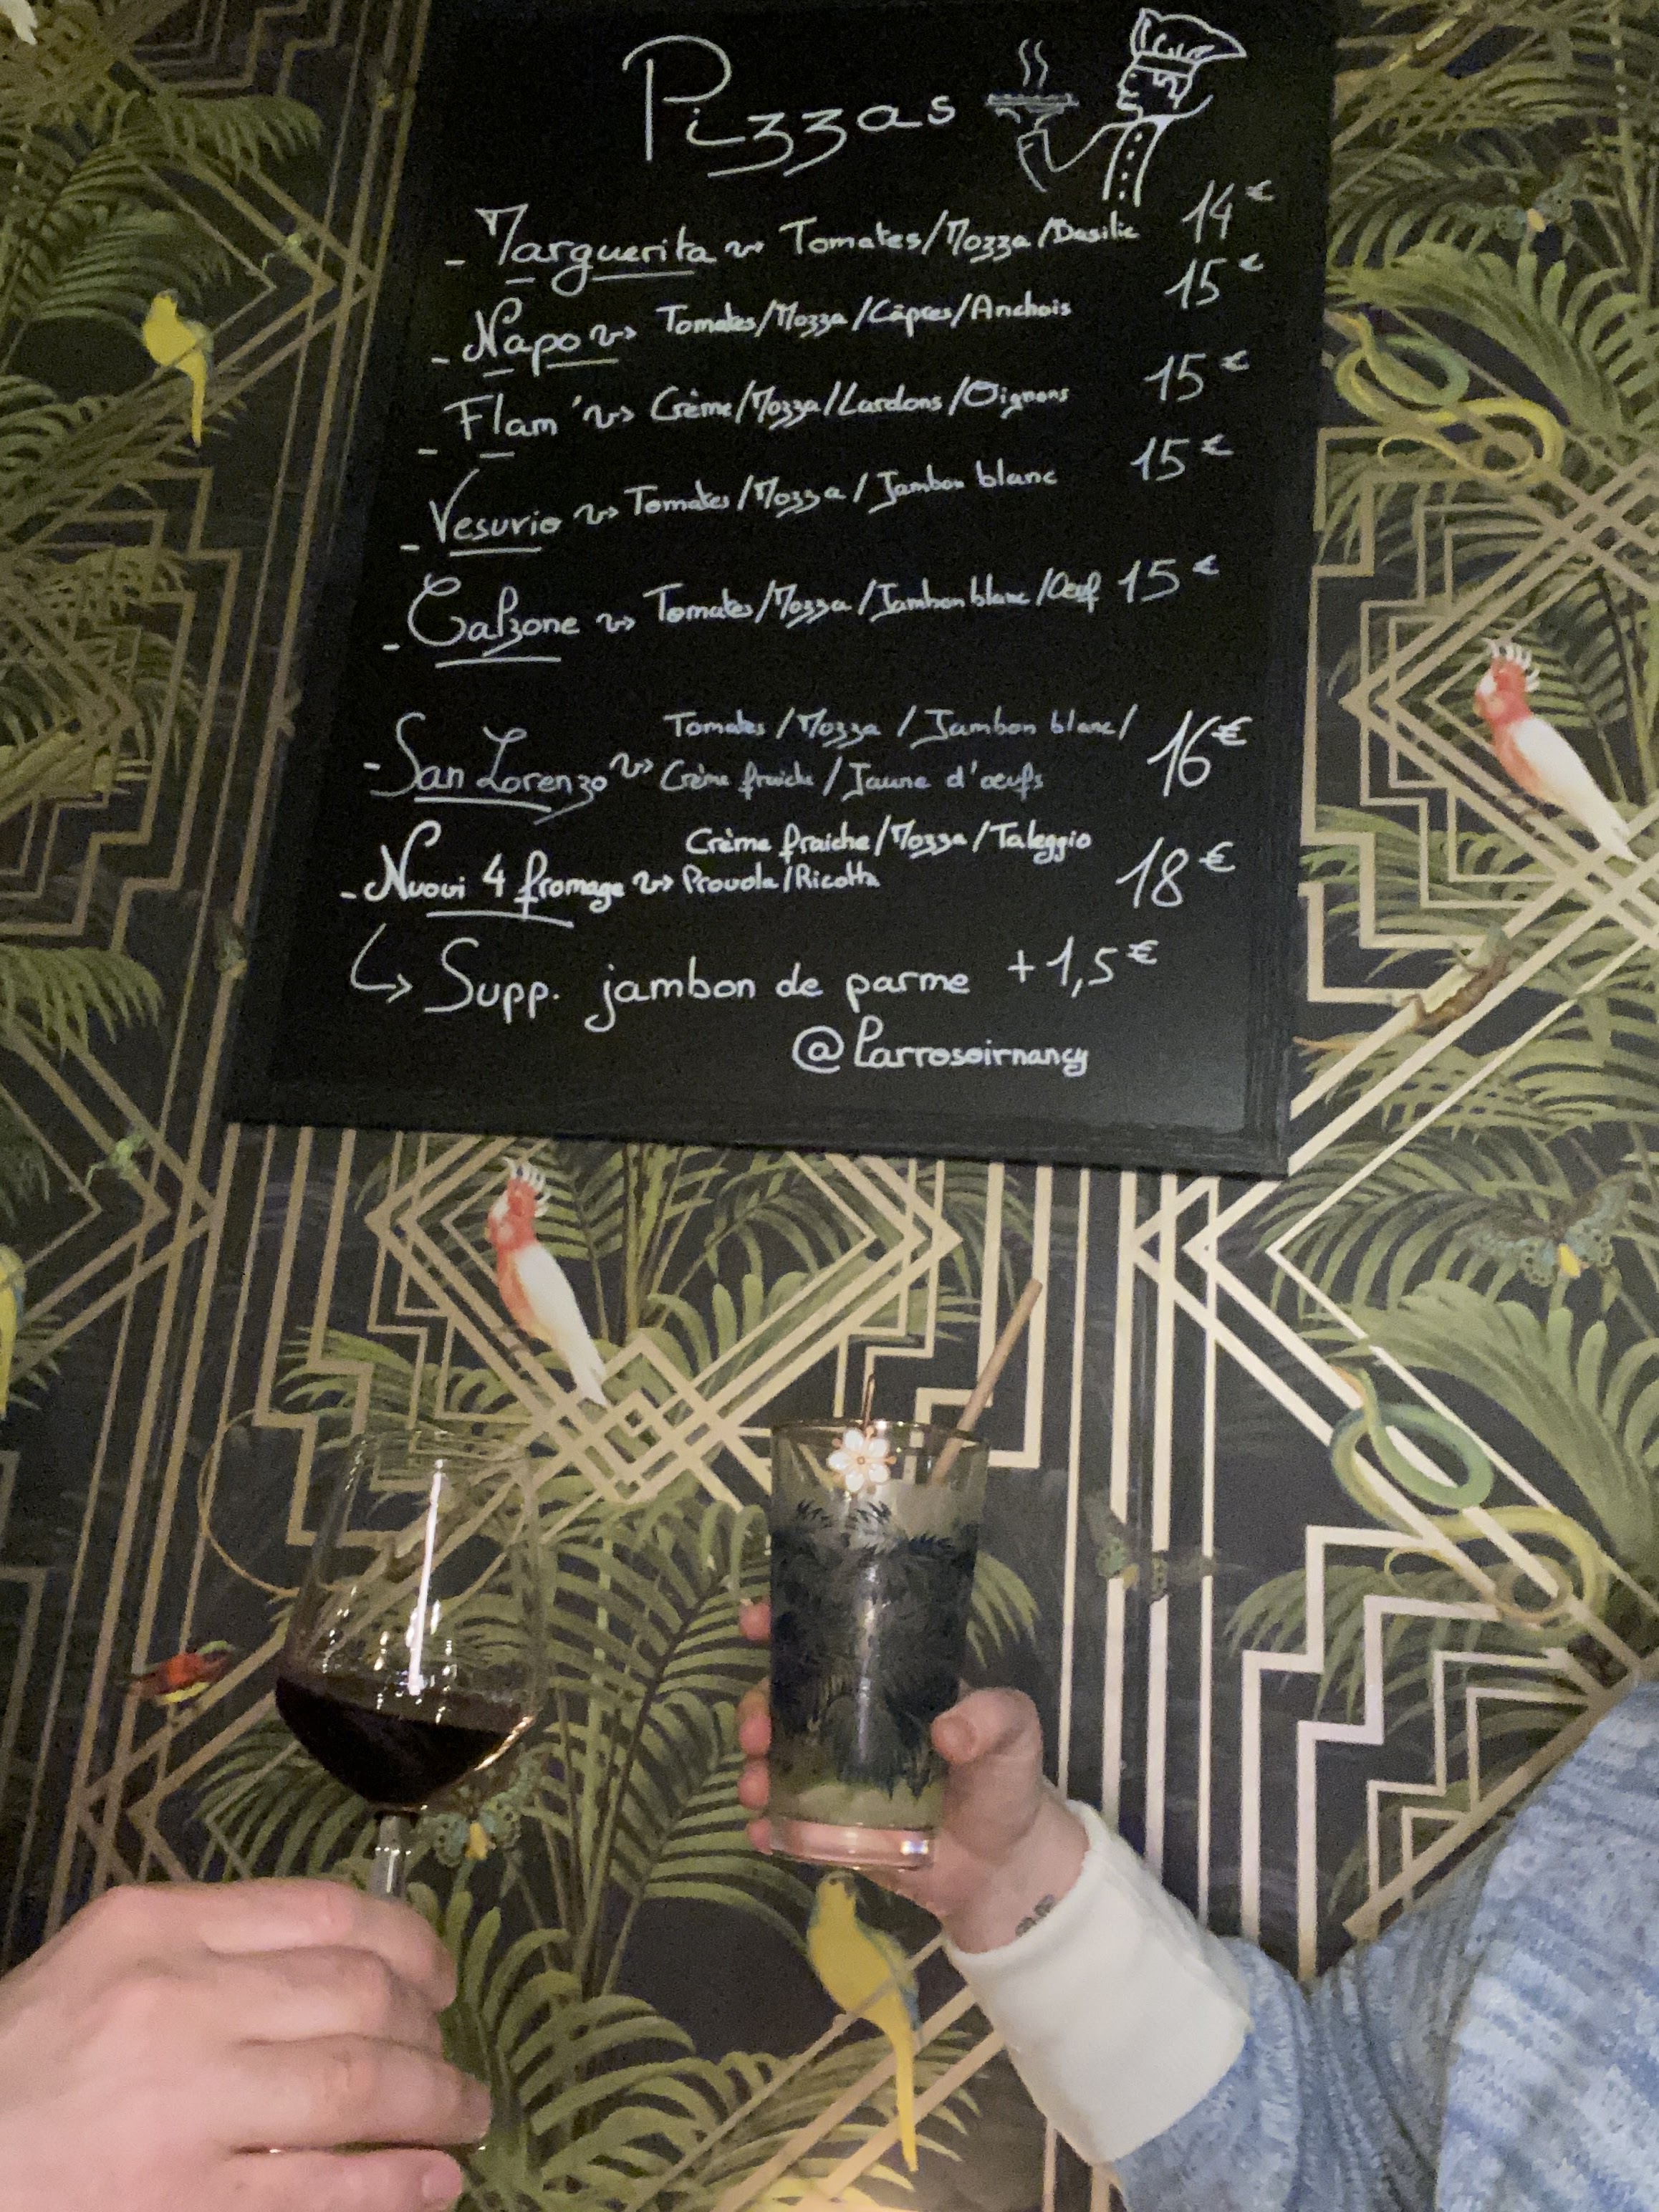 Pizzas
- Marguerita ~> Tomates/Mozza/Basilic 14€
- Napo ~> Tomates/Mozza/Câpres/Anchois 15€
- Flam' ~> Crème/Mozza/Lardons/Oignons 15€
- Vesuvio ~> Tomates/Mozza/Jambon blanc 15€
- Calzone ~> Tomates/Mozza/Jambon blanc/Oeuf 15€
- San Lorenzo ~> Tomates/Mozza/Jambon blanc/ 16€
Crème fraiche/Jaune d'œufs
- Nuovi 4 fromage ~> Crème fraiche/Mozza/Taleggio 18€
Provola/Ricotta
↳ Supp. jambon de parme +1,5€
@larrosoirnancy